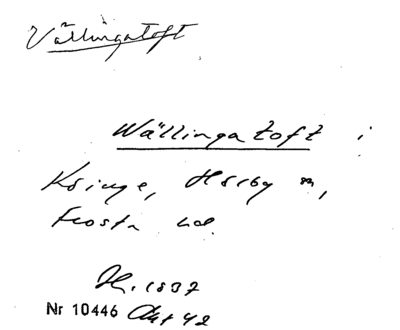 Vällingatoft
Wällingatoft i
Ksinge, Hörby sn,
Frosta hd.
H. 1537
Nr 10446 Akt 42